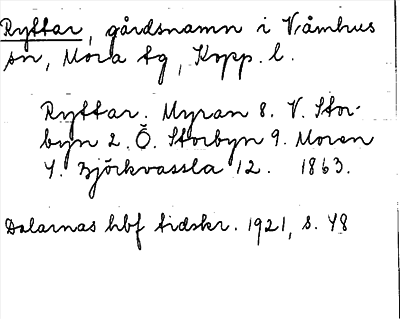 Ryttar, gårdsnamn i Våmhus
sn, Mora tg, Kopp. l.
Ryttar. Myran 8. V. Stor-
byn 2. Ö. Storbyn 9. Moren
4. Björkvassla 12. 1863.
Dalarnas hbf tidskr. 1921, s. 48